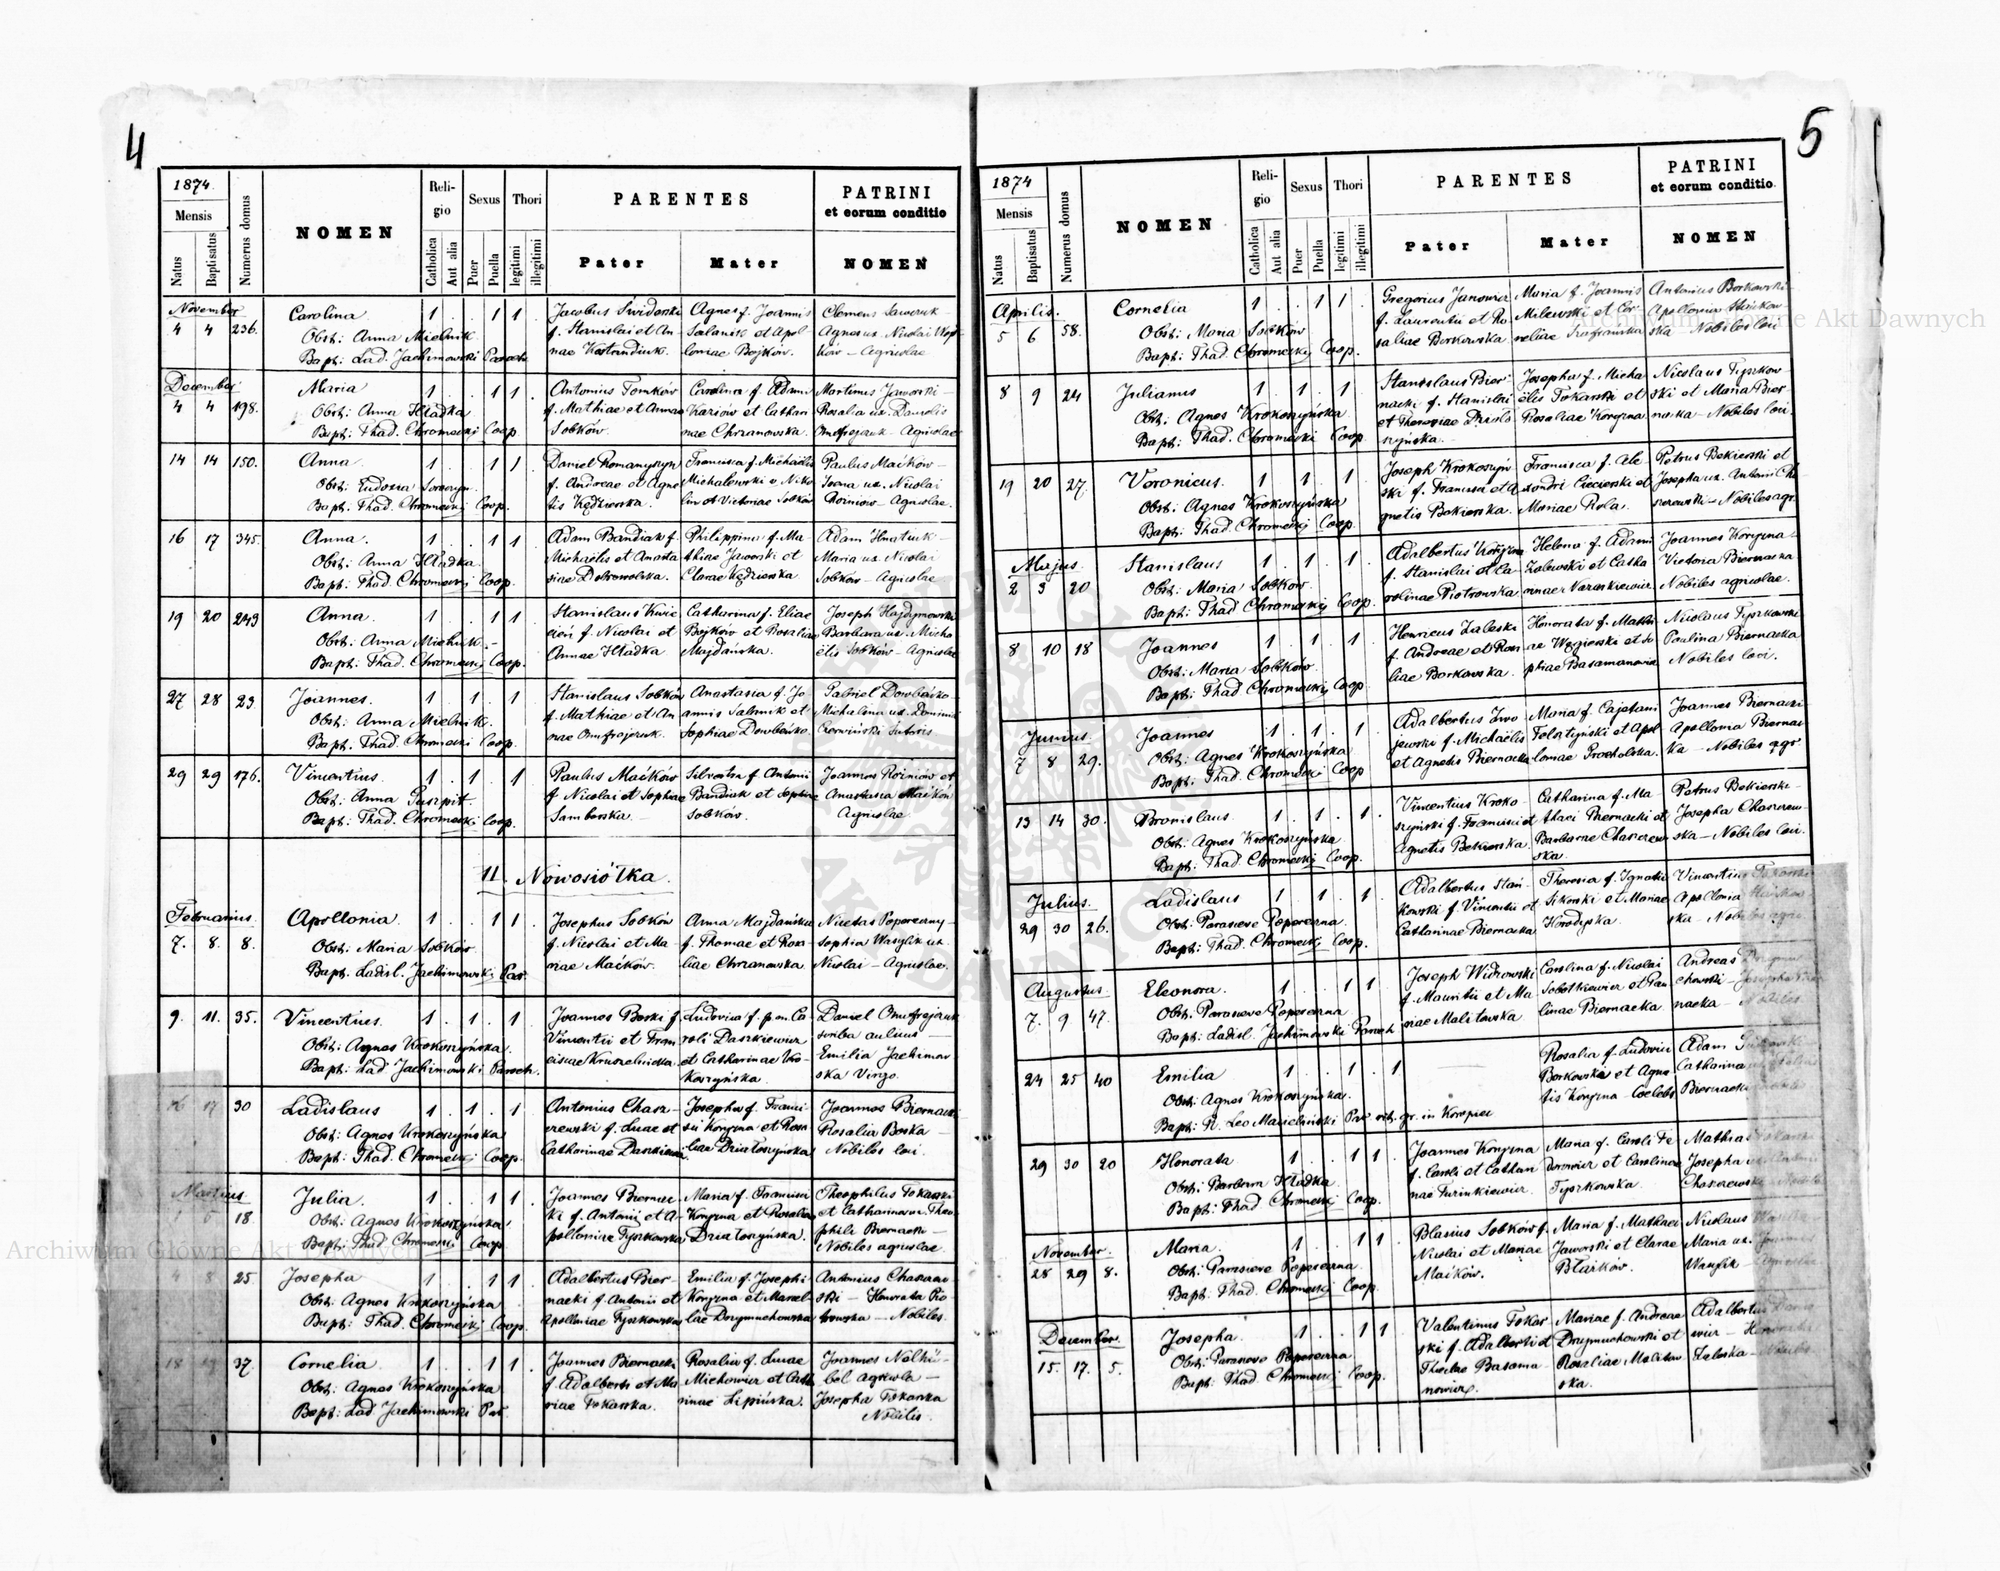 4
1874.
Mensis
Natus
Baptisatus
Numerus domus
NOMEN
Religio
Catholica
Aut alia
Sexus
Puer
Puella
Thori
legitimi
illegitimi
PARENTES
Pater
Mater
PATRINI
et eorum conditio
NOMEN
November
4 4 236. Carolina 1 . . 1 1
Obst: Anna Mielnik
Bapt: Lad. Jachimowski Paroch
Jacobus Świderski
f. Stanislai et An-
nae
Agnes f. Joannis
Salanik et Apol
loniae Bojków.
Clemens
Agnes ux. Nicolai
Agricolae
December
4 4 198. Maria 1 . . 1 1
Obst: Anna Hładka
Bapt: Thad. Chromecki Coop.
Antonius Tomków
f. Mathiae et Annae
Sobków.
Carolina f. Adami
Karsów et Cathari
nae Chrzanowska.
Martinus Jaworski –
Rosalia ux. Danielis
Onufrejczuk – Agricolae
14 14 150. Anna 1 . . 1 1
Obst: Eudoxia
Bapt: Thad. Chromecki Coop.
Daniel Romanyszyn
f. Andreae et Agne
tis Kędzierska.
Francisca f. Michaelis
Michalewski v. Niko
lin et Victoriae Sobków
Paulus Maćków –
Joana ux. Nicolai
Rożniów – Agricolae.
16 17 345. Anna. 1 . . 1 1
Obst: Anna Hładka.
Bapt: Thad. Chromecki Coop.
Adam Bandiak f.
Michaelis et Anasta
siae Dobrowolska.
Philippina f. Ma-
thiae Jaworski et
Clarae Kędzierska
Adam Hnatiuk –
Maria ux. Nicolai
Sobków – Agricolae
19 20 249 Anna. 1 . . 1 1
Obst: Anna Mielnik. –
Bapt: Thad. Chromecki Coop.
Stanislaus Kwie
cień f. Nicolai et
Annae Hładka
Catharina f. Eliae
Bojków et Rosaliae
Majdańska.
Joseph Hajdymowski
Barbara ux. Micha
elis Sobków – Agricolae
27 28 23. Joannes. 1 . 1 . 1
Obst: Anna Mielnik.
Bapt: Thad. Chromecki Coop.
Stanislaus Sobków
f. Mathiae et An
nae Onufrejczuk.
Anastasia f. Jo-
annis Salanik et
Sophiae Dowbeńko.
Gabriel Dowbeńko –
Michalina ux. Dominici
Czerwiński Sutoris
29 29 176. Vincentius. 1 . 1 . 1
Obst: Anna Puszpit.
Bapt: Thad. Chromecki Coop.
Paulus Maćków
f. Nicolai et Sophiae
Samborska –
Silvestra f. Antonii
Bandiak et Sophiae
Sobków.
Joannes Rożniów et
Anastasia Maćków
Agricolae
11. Nowosiółka.
Februarius.
7. 8. 8. Apollonia 1 . . 1 1
Obst: Maria Sobków
Bapt: Ladisl. Jachimowski Par.
Josephus Sobków
f. Nicolai et Ma-
riae Maćków.
Anna Majdańska
f. Thomae et Rosa-
liae Chrzanowska.
Nicetas Popereczny –
Sophia Wasylik ux.
Nicolai – Agricolae.
9. 11. 35. Vincentius. 1 . 1 . 1
Obst: Agnes Krokoszyńska.
Bapt: Lad. Jachimowski Paroch.
Joannes Boski f.
Vincentii et Fran
ciscae Kruszelnicka
Ludovica f. p.m. Ca-
roli Daszkiewicz
et Catharinae Kro-
koszyńska.
Daniel Onufrejczuk
scriba aulicus –
Emilia Jachimow-
ska Virgo.
16 17 30 Ladislaus 1 . 1 . 1
Obst: Agnes Krokoszyńska
Bapt: Thad. Chromecki Coop.
Antonius Chasz-
czewski f. Lucae et
Catharinae Daszkiewicz
Josepha f. Franci-
sci Koryzna et Rosa
liae Dziatoszyńska
Joannes Biernacki
Rosalia Boska –
Nobiles loci.
Martius
18. Julia. 1 . . 1 1
Obst: Agnes Krokoszyńska
Bapt: Thad. Chromecki Coop.
Joannes Biernac-
ki f. Antonii et A-
polloniae Tyszkowska
Maria f. Francisci
Koryzna et Rosaliae
Dziatoszyńska.
Theophilus Tokarski
et Catharina ux. Theo
phili Biernacki –
Nobiles agricolae.
4 8 25. Josepha 1 . . 1 1
Obst: Agnes Krokoszyńska
Bapt: Thad. Chromecki Coop.
Adalbertus Bier-
nacki f. Antonii et
Apolloniae Tyszkowska
Emilia f. Josephi
Koryzna et Marcel
lae Drymuchowska
Antonius Chaszczew-
ski – Honorata Pio-
trowska – Nobiles.
18 19 37. Cornelia 1 . . 1 1
Obst: Agnes Krokoszyńska
Bapt: Lad. Jachimowski Par.
Joannes Biernacki
f. Adalberti et Ma
riae Tokarska.
Rosalia f. Lucae
Michowicz et Catha
rinae Lipińska.
Joannes
agricola –
Josepha Tokarska
Nobilis.
5
1874
Mensis
Natus
Baptisatus
Numerus domus
NOMEN
Religio
Catholica
Aut alia
Sexus
Puer
Puella
Thori
legitimi
illegitimi
PARENTES
Pater
Mater
PATRINI
et eorum conditio.
NOMEN
Aprilis.
5 6 58. Cornelia 1 . . 1 1
Obst: Maria Sobków
Bapt: Thad. Chromecki Coop.
Gregorius Janowicz
f. Laurentii et Ro
saliae Borkowska
Maria f. Joannis
Milewski et Cor-
neliae
Antonius Borkowski –
Apollonia Stańkow
ska – Nobiles loci
8 9 24 Julianus 1 . 1 . 1
Obst: Agnes Krokoszyńska
Bapt: Thad. Chromecki Coop.
Stanislaus Bier-
nacki f. Stanislai
et Theresiae
Josepha f. Micha
elis Tokarski et
Rosaliae Koryzna
Nicolaus Tyszkow
ski et Maria Bier
nacka – Nobiles loci.
19 20 27. Veronicus. 1 . 1 . 1
Obst: Agnes Krokoszyńska
Bapt: Thad. Chromecki Coop.
Joseph Krokoszyń
ski f. Francisci et A
gnetis Bekierska.
Francisca f. Ale
xandri Ciecierski et
Mariae Rola.
Petrus Bekierski et
Josepha ux. Antonii Cha
szczewski – Nobiles agr.
Majus.
2 3 20 Stanislaus 1 . 1 . 1
Obst: Maria Sobków.
Bapt: Thad. Chromecki Coop.
Adalbertus Koryzna
f. Stanislai et Ca-
rolinae Piotrowska
Helena f. Adami
Zalewski et Catha
rinae Naraskiewicz
Joannes Koryzna –
Victoria Biernacka
Nobiles agricolae.
8 10 18 Joannes 1 . 1 . 1
Obst: Maria Sobków
Bapt: Thad. Chromecki Coop.
Henricus Zaleski
f. Andreae et Rosa
liae Borkowska.
Honorata f. Mathi
ae Węgierski et So
phiae Basamanowicz
Nicolaus Tyszkowski
Paulina Biernacka
Nobiles loci.
Junius.
7 8 29. Joannes 1 . 1 . 1
Obst: Agnes Krokoszyńska
Bapt: Thad. Chromecki Coop
Adalbertus Zwo
jewski f. Michaelis
et Agnetis Biernacka
Maria f. Cajetani
et Apol
loniae Prochalska.
Joannes Biernacki
Apollonia Biernac
ka – Nobiles agr
13 14 30. Bronislaus. 1 . 1 . 1
Obst: Agnes Krokoszyńska
Bapt: Thad. Chromecki Coop.
Vincentius Kroko-
szyński f. Francisci et
Agnetis Bekierska.
Catharina f. Ma-
thaei Biernacki et
Barbarae Chaszczew
ska.
Petrus Bekierski –
Josepha Chaszczew
ska – Nobiles loci.
Julius.
29 30 26. Ladislaus 1 . 1 . 1
Obst: Parasceve Popereczna.
Bapt: Thad. Chromecki Coop.
Adalbertus Stań-
kowski f. Vincentii et
Catharinae Biernacka
Theresia f. Ignatii
Sikorski et Mariae
Horodyska.
Vincentius Tokarski
Apollonia Stańkow
ska – Nobiles agri
Augustus.
7. 9 47. Eleonora. 1 . . 1 1
Obst: Parasceve Popereczna
Bapt: Ladisl. Jachimowski Paroch
Joseph Widrowski
f. Mauritii et Ma
riae Malitowska
Carolina f. Nicolai
Sobotkiewicz et Pau
linae Biernacka
Andreas
chowski – Josepha Bier
nacka – Nobiles
24 25 40 Emilia 1 . . 1 . 1
Obst: Agnes Krokoszyńska.
Bapt: R. Leo Par. rit. gr. in Koropiec
Rosalia f. Ludovici
Borkowski et Agne
tis Koryzna Coelebs
Adam
Catharina
Biernacki
29 30 20 Honorata 1 . . 1 1
Obst: Barbara Hładka.
Bapt: Thad. Chromecki Coop.
Joannes Koryzna
f. Caroli et Cathari
nae Turinkiewicz.
Maria f. Caroli Fe
dorowicz et Carolinae
Tyszkowska.
Mathias Tokarski
Josepha ux. Antonii
Chaszczewski
November.
28 29 8. Maria. 1 . . 1 1
Obst: Parasceve Popereczna
Bapt: Thad. Chromecki Coop.
Blasius Sobków f.
Nicolai et Mariae
Maćków.
Maria f. Mathaei
Jaworski et Clarae
Błażków.
Nicolaus
Maria ux. Joannis
Wasylik – Agricolae
December.
15. 17. 5. Josepha. 1 . . 1 1
Obst: Parasceve Popereczna
Bapt: Thad. Chromecki Coop.
Valentinus Tokar
ski f. Adalberti et
Theclae Basama-
nowicz.
Mariae f. Andreae
Drymuchowski et
Rosaliae Malitow
ska.
Adalbertus
wicz – Honorata
Zaleska – Nobiles
Archiwum Główne Akt Dawnych
Archiwum Główne Akt Dawnych